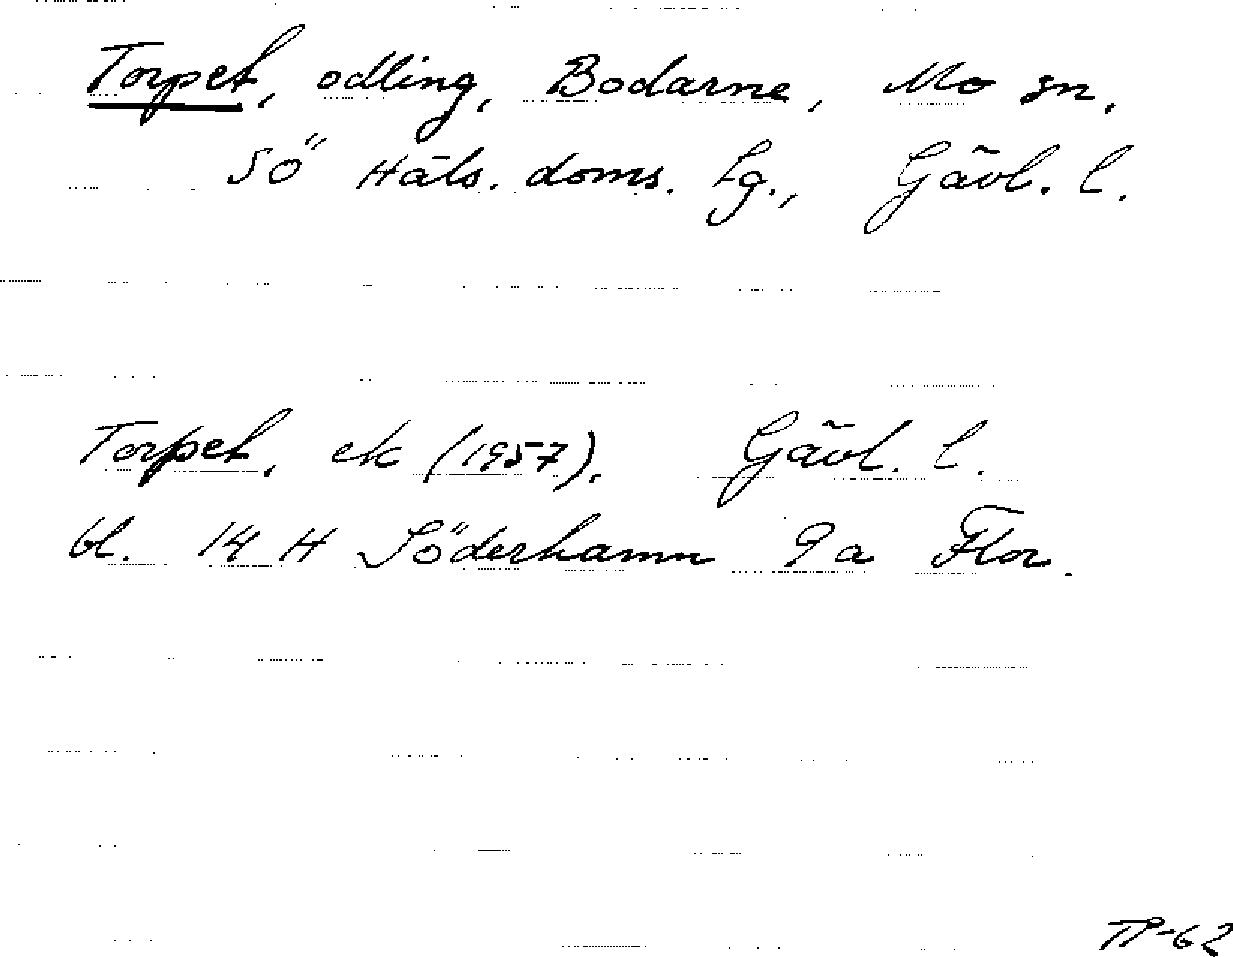 Torpet, odling, Bodarne, Mo sn,
Sö Häls. doms. lg., Gävl. l.
Torpet, ek (1957). Gävl. l.
bl. 14 H Söderhamn 9 a Flor.
TP-62